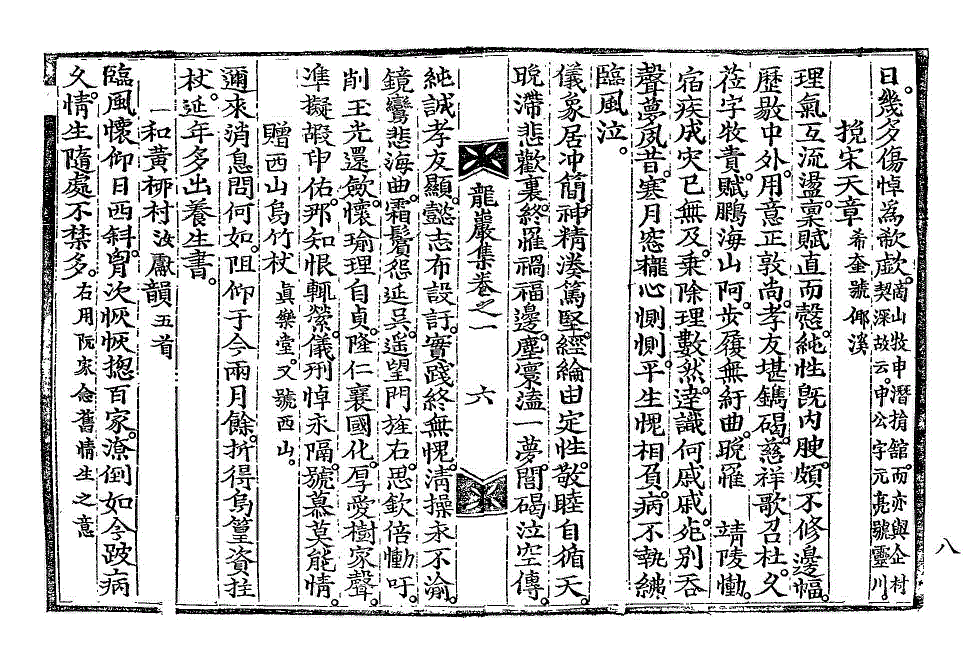 日。幾多傷悼爲欷歔。商山牧申潛捐舘而亦與企村契深故云。申公字元亮號靈川。
挽宋天章希奎號倻溪
理氣互流盪。稟賦直而慤。純性旣內腴。頗不修邊幅。
歷敭中外用。意正敦尙。孝友堪鐫碣。慈祥歌召杜。久
莅字牧責。賦鵬海山阿。步履無紆曲。晩罹 靖陵慟。
宿疾成灾已無及。乘除理數然。達識何戚戚。死別呑
聲夢夙昔。寒月窓櫳心惻惻。平生愧相負。病不執紼
臨風泣。
儀象居冲簡。神精湊篤堅。經綸由定性。敬睦自循天。
晩滯悲歡裏。終罹禍福邊。塵寰溘一夢。閭碣泣空傳。
龍巖集卷之一 六
純誠孝友顯。懿志布設訏。實踐終無愧。淸操永不渝。
鏡鸞悲海曲。霜鬢怨延吳。遙望門旌右。思欽倍慟吁。
削玉光還斂。懷瑜理自貞。隆仁襄國化。厚愛樹家聲。
準擬嘏申佑。那知恨輒縈。儀刑悼永隔。號慕莫能情。
贈西山烏竹杖眞樂堂。又號西山。
邇來消息問何如。阻仰于今兩月餘。折得烏篁資拄
杖。延年多出養生書。
和黃柳村汝獻韻五首
臨風懷仰日西斜。胷次恢恢揔百家。潦倒如今跛病
久。情生隨處不禁多。右用阮家念舊情生之意
八